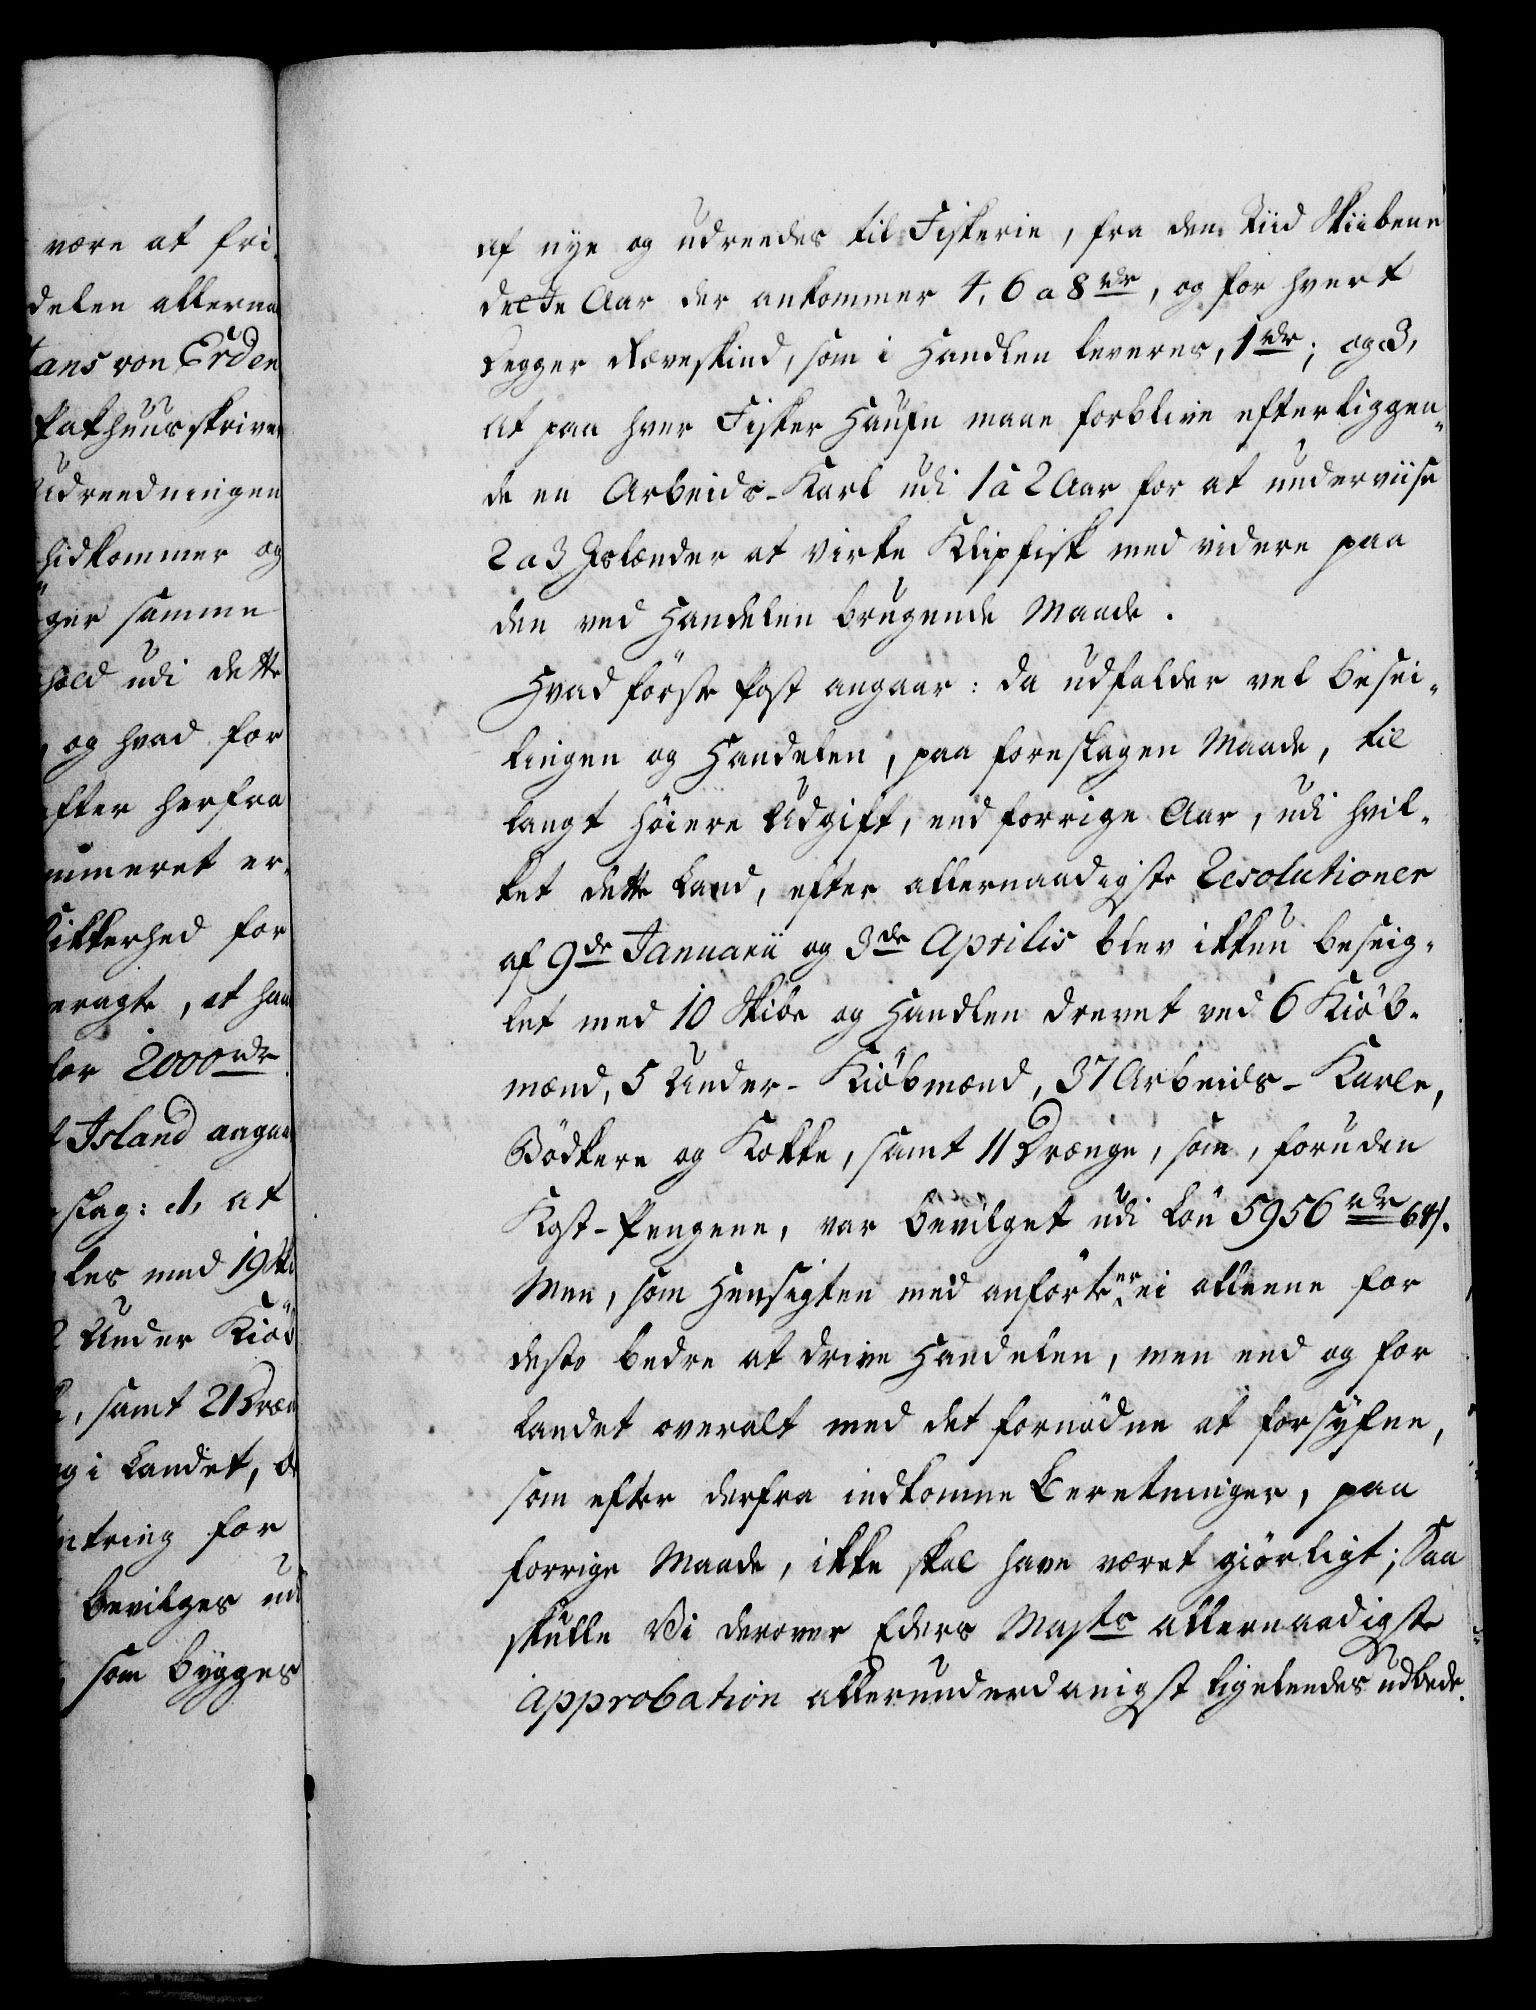 være at fri
delen allerna
Hans von Erden
Pakhuusskriver
Udreedningen
hidkommer og
ger samme
hold udi dette
og hvad for
efter herfra
numeret er
Sikkerhed for
eragte, at han
for 2000 rdr
Island angaa
slag: 1, at
les med 19 Ski
2 Under Kiöb
, samt 21 Dræn
og i Landet, d
ntring for
bevilges udi
som bygges
af nye og udreedes til Fiskerie, fra den Tiid Skibene
dette Aar der ankommer 4, 6 a 8 rdr, og for hvert
Degger Ræveskind, som i Handlen leveres, 1 rdr; og 3,
at paa hver Fisker Haufn maae forblive efterliggen„
de en Arbeids-Karl udi 1 à 2 Aar for at underviise
2 a 3 Islænder at virke Klipfisk med videre paa
den ved Handelen brugende Maade.
Hvad förste Post angaar: da udfalder vel Besei„
lingen og Handelen, paa foreslagen Maade, til
langt höiere Udgift, end forrige Aar, udi hvil„
ket dette Land, efter allernaadigste Resolutioner
af 9de Januarii og 3de Aprilis blev ikkun beseig„
let med 10 Skibe og Handlen drevet ved 6 Kiöb„
mænd, 5 Under-Kiöbmænd, 37 Arbeids-Karle,
Bödkere og Kokke, samt 11 Drænge, som, foruden
Kost-Pengene, var bevilget udi Lön 5956 rdr 64 s.
Men, som Hensigten med anförte er ei alleene for
desto bedre at drive Handelen, men end og for
Landet overalt med det fornödne at forsyfne,
som efter derfra indkomne Beretninger, paa
forrige Maade, ikke skal have været giörligt; Saa
skulle Vi derover Eders Majts allernaadigste
Approbation allerunderdanigst ligeledes udbede.